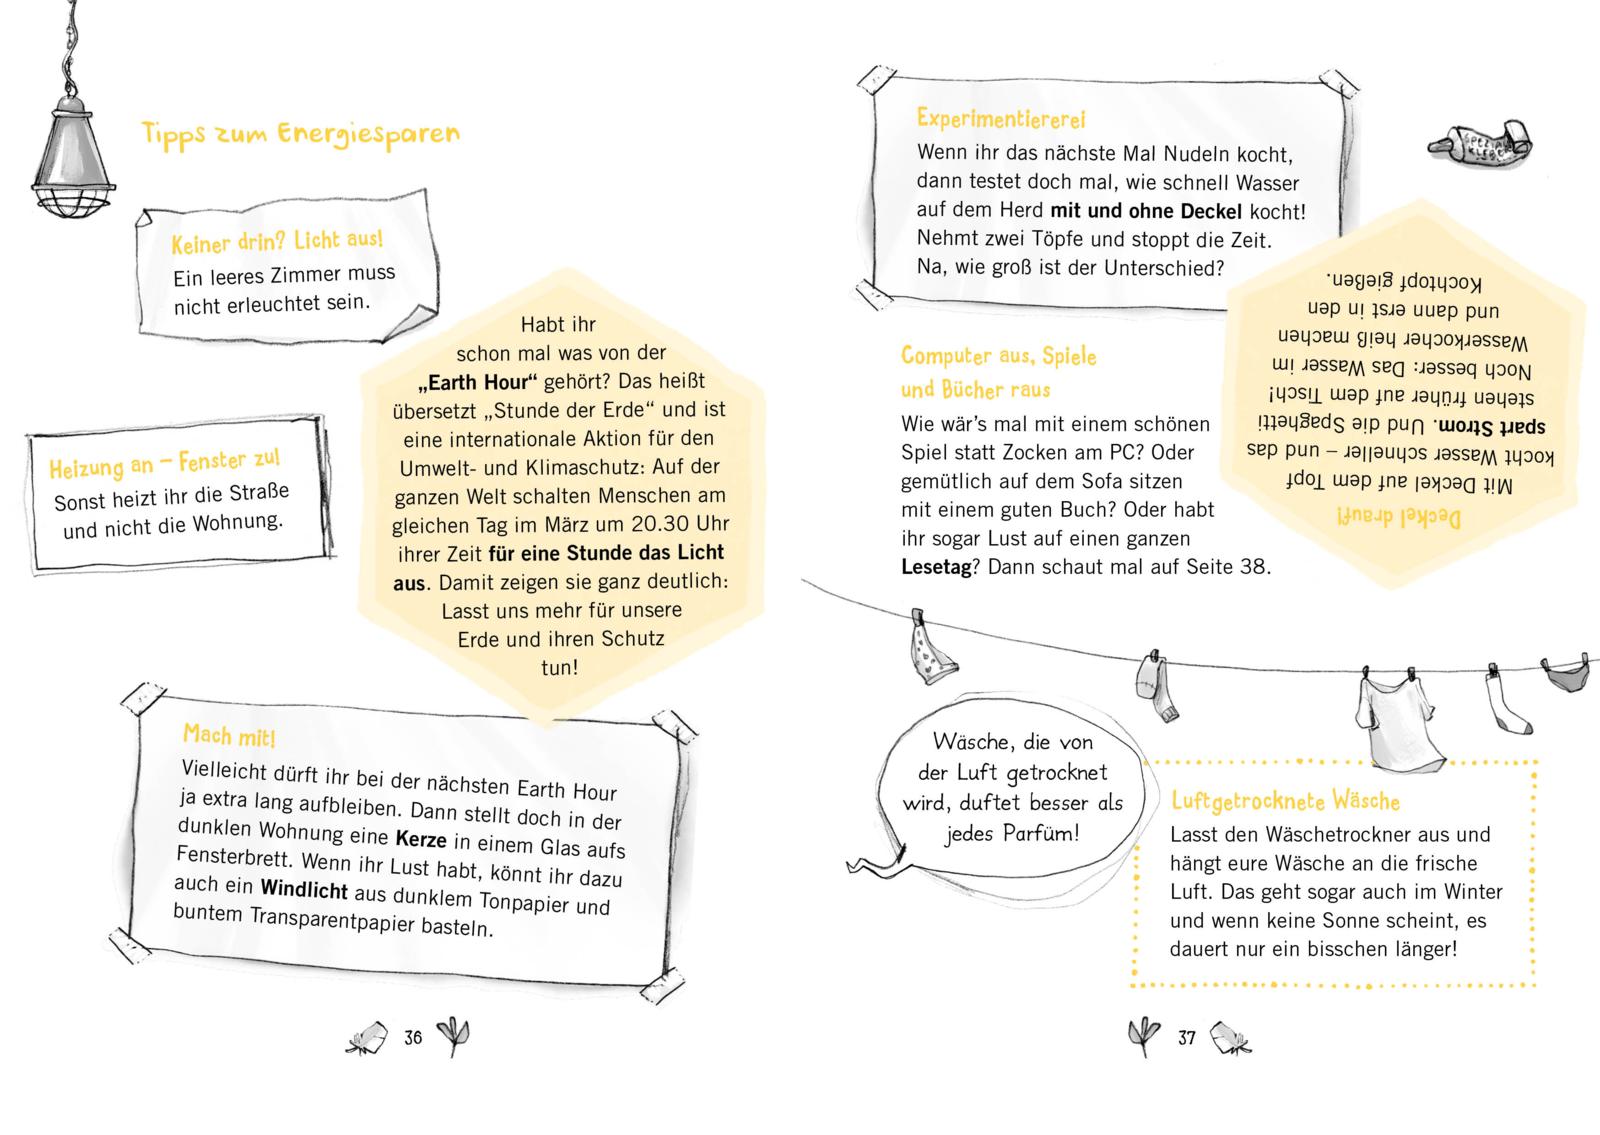 Tipps zum Energiesparen
Keiner drin? Licht aus!
Ein leeres Zimmer muss
nicht erleuchtet sein.
Heizung an – Fenster zu!
Sonst heizt ihr die Straße
und nicht die Wohnung.
Habt ihr
schon mal was von der
„Earth Hour“ gehört? Das heißt
übersetzt „Stunde der Erde“ und ist
eine internationale Aktion für den
Umwelt- und Klimaschutz: Auf der
ganzen Welt schalten Menschen am
gleichen Tag im März um 20.30 Uhr
ihrer Zeit für eine Stunde das Licht
aus. Damit zeigen sie ganz deutlich:
Lasst uns mehr für unsere
Erde und ihren Schutz
tun!
Mach mit!
Vielleicht dürft ihr bei der nächsten Earth Hour
ja extra lang aufbleiben. Dann stellt doch in der
dunklen Wohnung eine Kerze in einem Glas aufs
Fensterbrett. Wenn ihr Lust habt, könnt ihr dazu
auch ein Windlicht aus dunklem Tonpapier und
buntem Transparentpapier basteln.
36
Experimentiererei
Wenn ihr das nächste Mal Nudeln kocht,
dann testet doch mal, wie schnell Wasser
auf dem Herd mit und ohne Deckel kocht!
Nehmt zwei Töpfe und stoppt die Zeit.
Na, wie groß ist der Unterschied?
SPEZIAL
KLEBER
Deckel drauf!
Mit Deckel auf dem Topf
kocht Wasser schneller – und das
spart Strom. Und die Spaghetti
stehen früher auf dem Tisch!
Noch besser: Das Wasser im
Wasserkocher heiß machen
und dann erst in den
Kochtopf gießen.
Computer aus, Spiele
und Bücher raus
Wie wär’s mal mit einem schönen
Spiel statt Zocken am PC? Oder
gemütlich auf dem Sofa sitzen
mit einem guten Buch? Oder habt
ihr sogar Lust auf einen ganzen
Lesetag? Dann schaut mal auf Seite 38.
Wäsche, die von
der Luft getrocknet
wird, duftet besser als
jedes Parfüm!
Luftgetrocknete Wäsche
Lasst den Wäschetrockner aus und
hängt eure Wäsche an die frische
Luft. Das geht sogar auch im Winter
und wenn keine Sonne scheint, es
dauert nur ein bisschen länger!
37